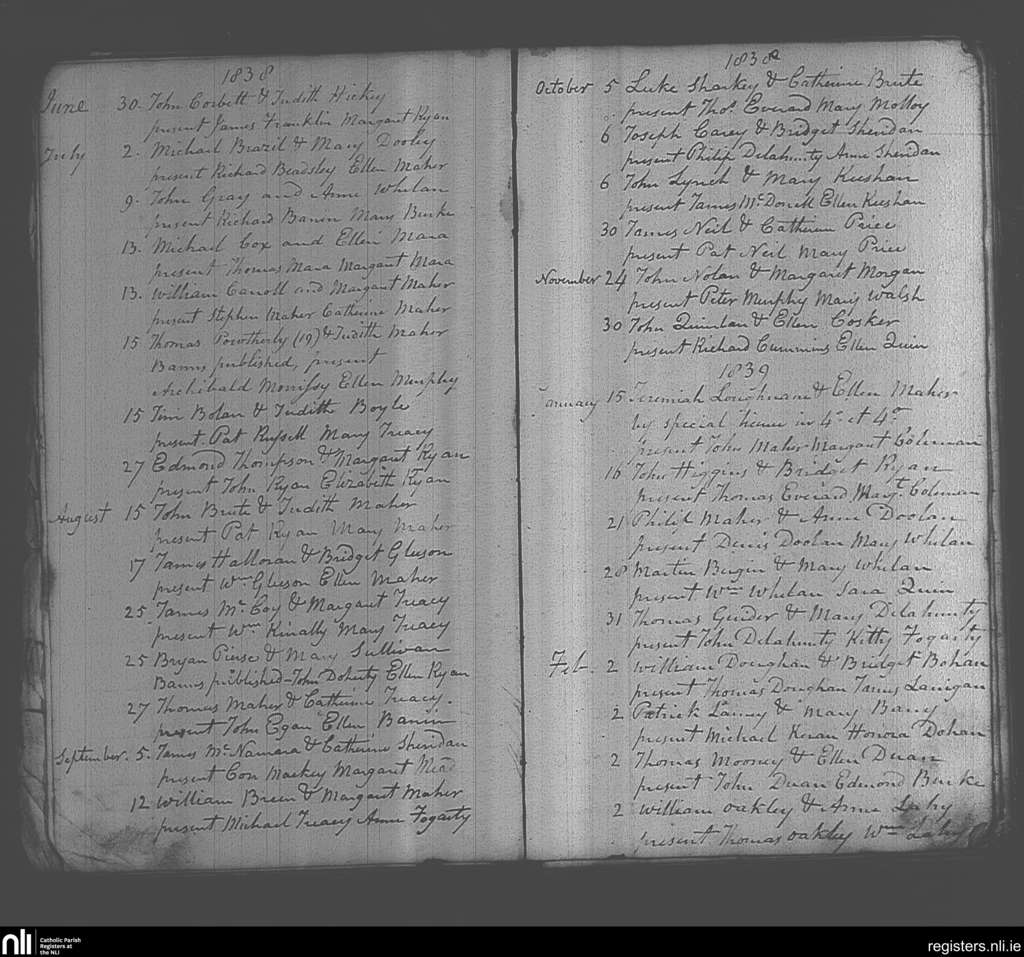 1838
June 30. John Corbett & Judith Hickey
present James Franklin Margaret Ryan
July 2. Michael Brazil & Mary Dooley
present Richard Beadsley Ellen Maher
9. John Gray and Anne Whelan
present Richard Banin Mary Burke
13. Michael Cox and Ellen Mara
present Thomas Mara Margaret Mara
13. William Carroll and Margaret Maher
present Stephen Maher Catherine Maher
15 Thomas (19) & Judith Maher
Banns published, present
Archibald Morrissy Ellen Murphy
15 Tim Bolan & Judith Boyle
present Pat Russell Mary Treacy
27 Edmond Thompson & Margaret Ryan
present John Ryan Elizabeth Ryan
August 15 John Brute & Judith Maher
present Pat Ryan Mary Maher
17 James Halloran & Bridget Gleeson
present Wm Gleeson Ellen Maher
25 James McCoy & Margaret Treacy
present Wm Kinally Mary Treacy
25 Bryan Pierse & Mary Sullivan
Banns published - John Doherty Ellen Ryan
27 Thomas Maher & Catherine Treacy.
present John Egan Ellen Banin
September. 5. James McNamara & Catherine Sheridan
present Con Mackey Margaret Mead
12 William Breen & Margaret Maher
present Michael Treacy Anne Fogarty
1838
October 5 Luke Sharkey & Catherine Brute
present Thos. Everard Mary Molloy
6 Joseph Carey & Bridget Sheridan
present Philip Delahunty Anne Sheridan
6 John Lynch & Mary Keeshan
present James McDonell Ellen Keeshan
30 James Neil & Catherine Price
present Pat Neil Mary Price
November 24 John Nolan & Margaret Morgan
present Peter Murphy Mary Walsh
30 John Quinlan & Ellen Cosker
present Richard Cummins Ellen Quin
1839
January 15 Jeremiah Loughnane & Ellen Maher
by special in 4º et 4º
present John Maher Margaret Coleman
16 John Higgins & Bridget Ryan
present Thomas Everard Margt. Coleman
21 Philip Maher & Anne Doolan
present Denis Doolan Mary Whelan
28 Martin Bergin & Mary Whelan
present Wm Whelan Sara Quin
31 Thomas Guider & Mary Delahunty
present John Delahunty Kitty Fogarty
Feb. 2 William Doughan & Bridget Bohan
present Thomas Doughan James Lanigan
2 Patrick & Mary Barry
present Michael Keran Honora Dohan
2 Thomas Mooney & Ellen Duan
present John Duan Edmond Burke
2 William Oakley & Anne Lahy
present Thomas Oakley Wm Lahy
nli Catholic Parish
Registers at
the NLI
registers.nli.ie